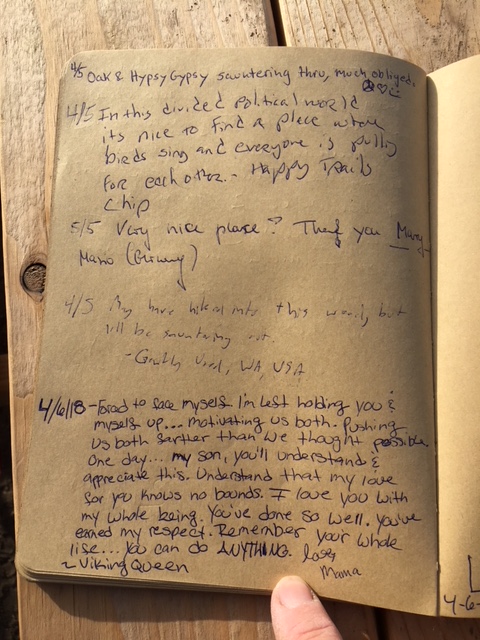 4/5 Oak & HypsyGypsy sauntering thru, much obliged.
4/5 In this divided political world
its nice to find a place where
birds sing and everyone is pulling
for each other. - Happy Trails
Chip
5/5 Very nice place? Thank you Mary
Mario (Germany)
4/5 My have hiked into this world, but
I'll be sauntering out.
WA, USA
4/6/18 - Forced to face myself. I'm left holding you &
myself up... motivating us both. Pushing
us both farther than we thought possible.
One day... my son, you'll understand &
appreciate this. Understand that my love
for you knows no bounds. I love you with
my whole being. You've done so well. You've
earned my respect. Remember your whole
life... you can do ANYTHING. Love,
~Viking Queen Mama
4-6-